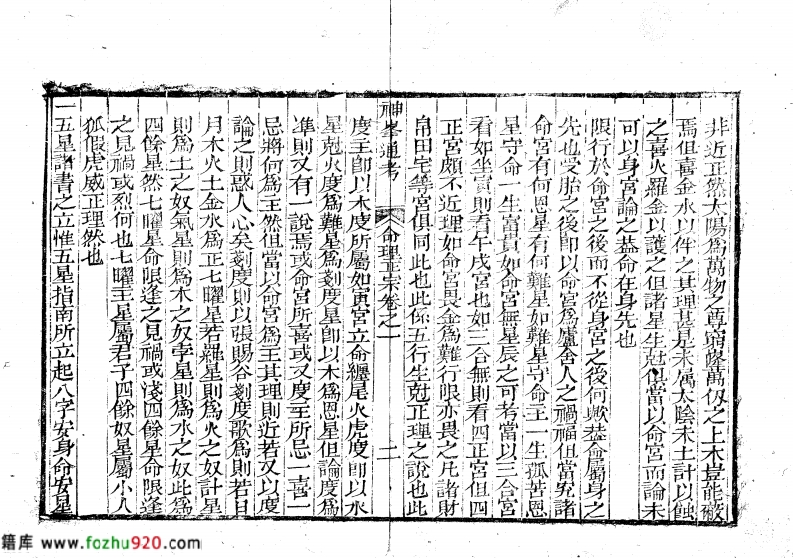 非近正然太陽爲萬物之尊窮簷萬仭之上木豈能蔽
焉但喜金水以伴之其理甚是未属太陰未土計以蝕
之喜火羅金以護之但諸星生尅但當以命宮而論未
可以身宮論之葢命在身先也
限行於命宮之後而不從身宮之後何歟葢命屬身之
先也受胎之後即以命宮爲廬舍人之禍福但當究諸
命宮有何恩星有何難星如難星守命主一生孤苦恩
星守命一生富貴如命宮無星辰之可考當以三合宮
看如坐寅則看午戌宮也如三合無則看四正宮但四
正宮頗不近理如命宮畏金爲難行限亦畏之凡諸財
帛田宅等宮俱同此也此係五行生尅正理之說也此
神峯通考 命理正宗卷之一 二
度主即以木度所屬如寅宮立命纏尾火虎度即以水
星尅火度爲難星爲剗度星即以木爲恩星但論度爲
準則又有一說焉或命宮所喜或又度主所忌一喜一
忌將何爲主然但當以命宮爲主其理則近若又以度
論之則惑人心矣剗度則以張賜谷剗度歌爲則若日
月木火土金水爲正七曜星若羅星則爲火之奴計星
則爲土之奴氣星則爲木之奴孛星則爲水之奴此爲
四餘星然七曜星命限逢之見禍或淺四餘星命限逢
之見禍或烈何也七曜主星屬君子四餘奴星屬小人
狐假虎威正理然也
一五星諸書之立惟五星指南所立起八字安身命安星
籍库 www.fozhu920.com